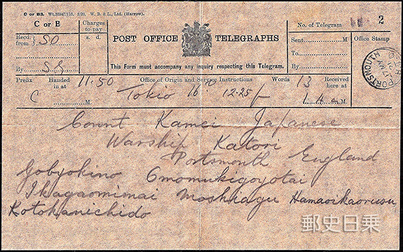 C or B
Charges to pay
s. d.
POST OFFICE TELEGRAPHS
No. of Telegram
2
Recd. from
SO
By
This Form must accompany any inquiry respecting this Telegram.
Office Stamp
PORTSMOUTH
Prefix
C
Handed in at
11.50
M
Office of Origin and Service Instructions
Tokio
12.25
Words
13
Received here at
M
Count Kamei Japanese
Warship Katori
Portsmouth England
Gobyokino Omomukigoyotai
Ikagaominai Moshiagu Hamaorikaorusu
Kotohanichido
郵史日乗